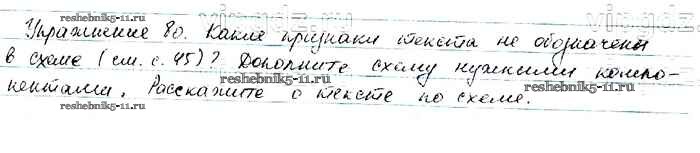 Упражнение 80. Какие признаки текста не обозначены
в схеме (см. с. 45)? Дополните схему нужными компо-
reshebnik5-11.ru
нентами. Расскажите о тексте по схеме.
reshebnik5-11.ru
reshebnik5-11.ru